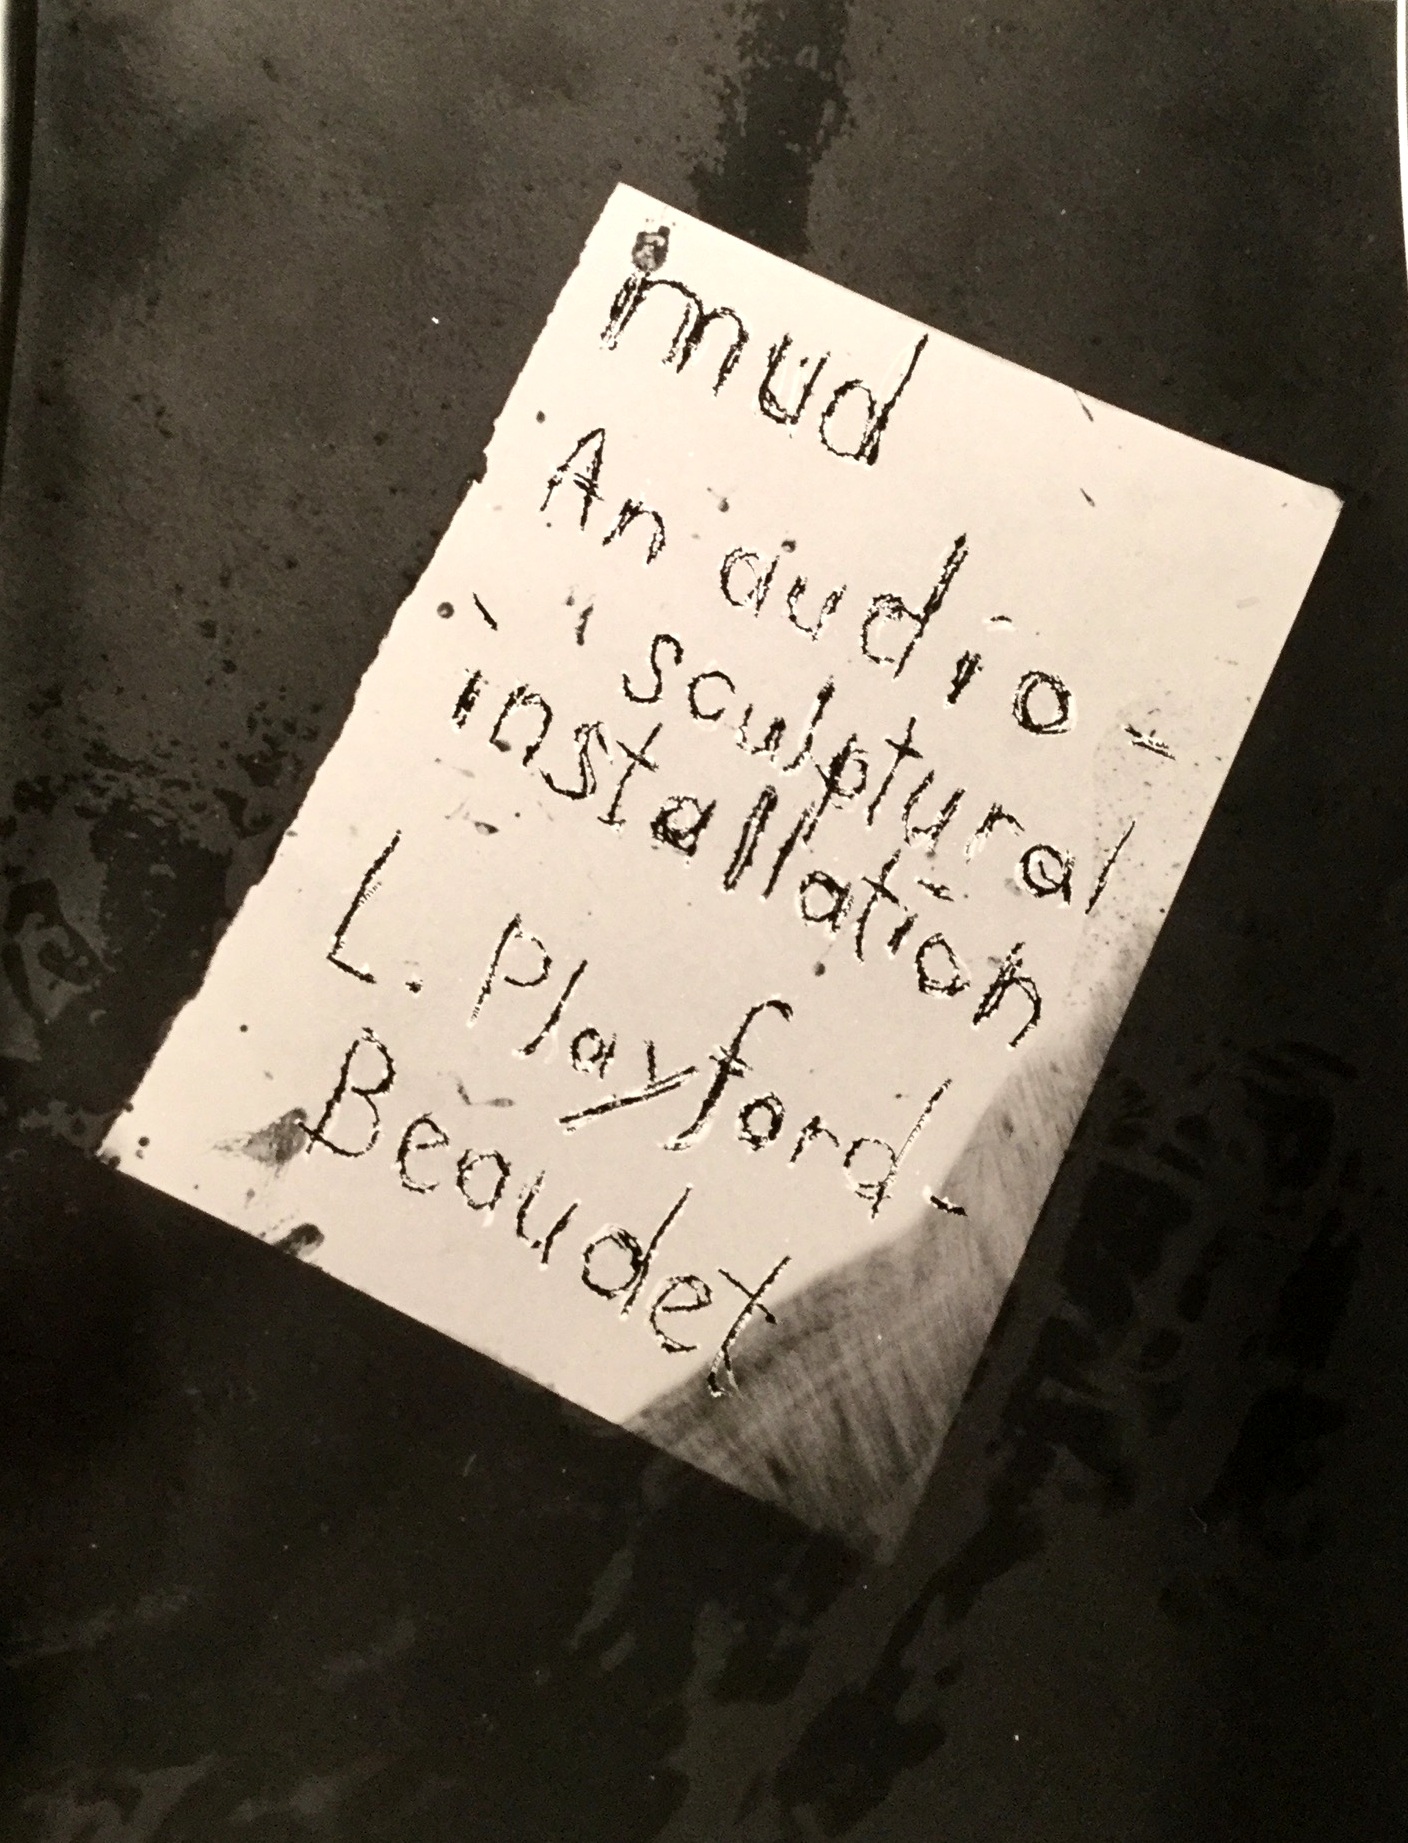 mud
An audio-
sculptural
installation
L. Playford-
Beaudet